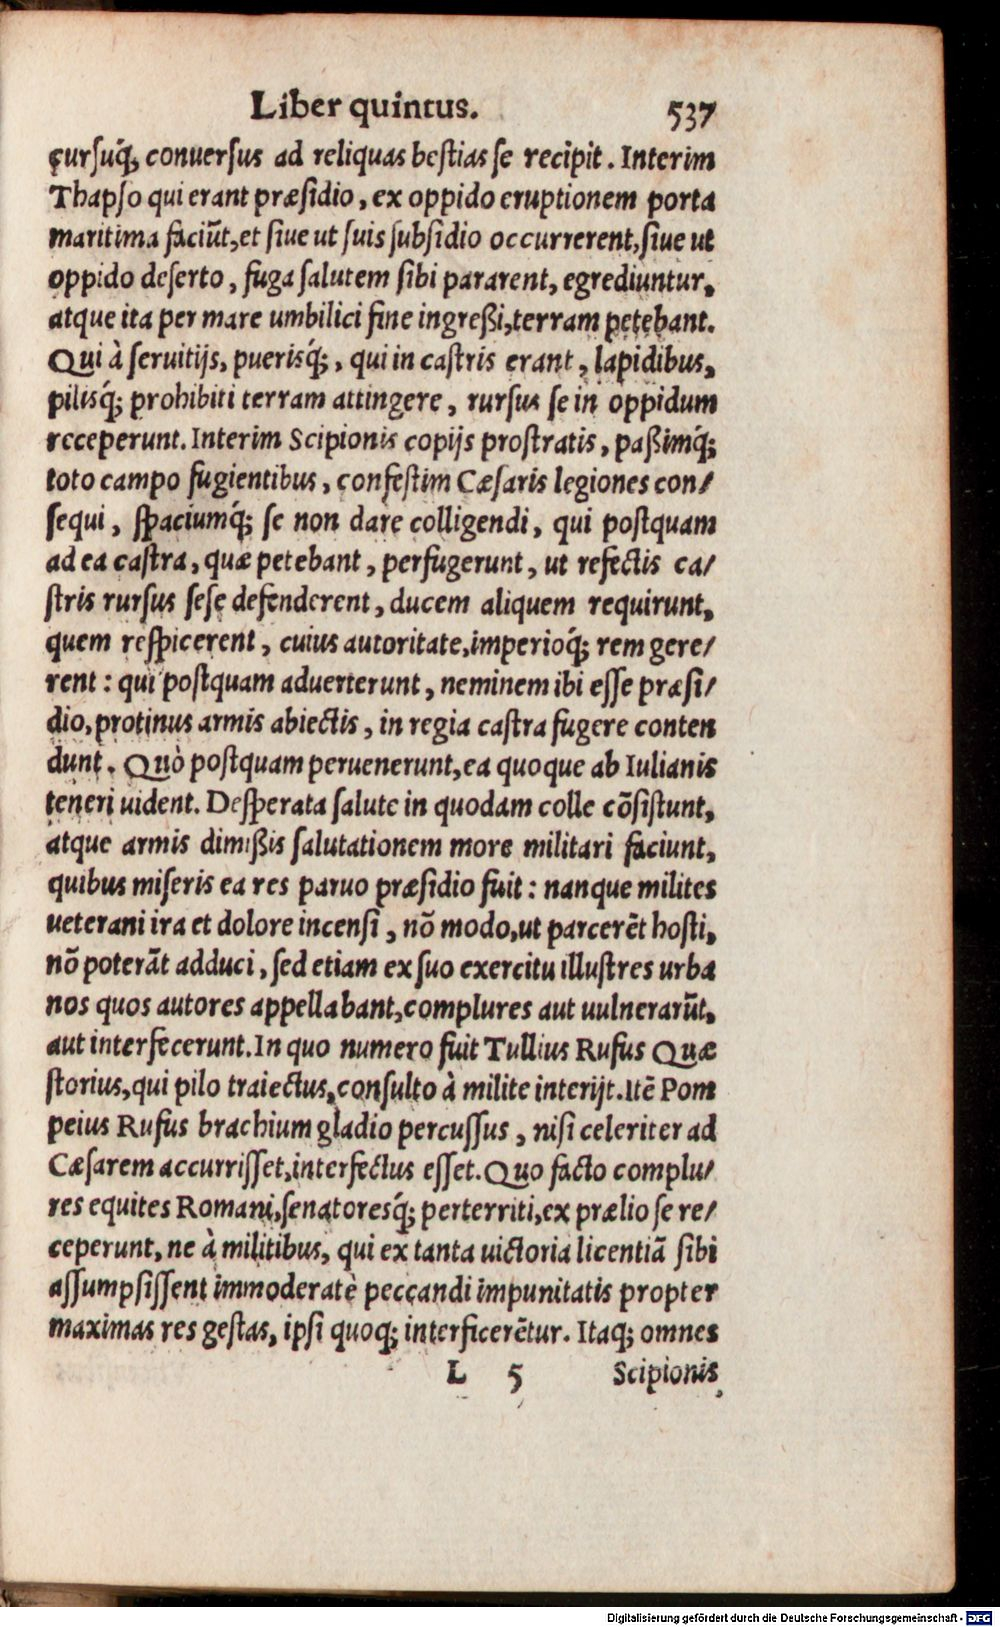 Liber quintus. 537
cursuq́; conuersus ad reliquas bestias se recipit. Interim
Thapso qui erant præsidio, ex oppido eruptionem porta
maritima faciũt, et siue ut suis subsidio occurrerent, siue ut
oppido deserto, fuga salutem sibi pararent, egrediuntur,
atque ita per mare umbilici fine ingreßi, terram petebant.
Qui à seruitijs, puerisq́;, qui in castris erant, lapidibus,
pilisq́; prohibiti terram attingere, rursus se in oppidum
receperunt. Interim Scipionis copijs prostratis, paßimq́;
toto campo fugientibus, confestim Cæsaris legiones con/
sequi, spaciumq́; se non dare colligendi, qui postquam
ad ea castra, quæ petebant, perfugerunt, ut refectis ca/
stris rursus sese defenderent, ducem aliquem requirunt,
quem respicerent, cuius autoritate, imperioq́; rem gere/
rent: qui postquam aduerterunt, neminem ibi esse præsi/
dio, protinus armis abiectis, in regia castra fugere conten
dunt. Quò postquam peruenerunt, ea quoque ab Iulianis
teneri uident. Desperata salute in quodam colle cõsistunt,
atque armis dimißis salutationem more militari faciunt,
quibus miseris ea res paruo præsidio fuit: nanque milites
ueterani ira et dolore incensi, nõ modo, ut parcerẽt hosti,
nõ poterãt adduci, sed etiam ex suo exercitu illustres urba
nos quos autores appellabant, complures aut uulnerarũt,
aut interfecerunt. In quo numero fuit Tullius Rufus Quæ
storius, qui pilo traiectus, consulto à milite interijt. Itẽ Pom
peius Rufus brachium gladio percussus, nisi celeriter ad
Cæsarem accurrisset, interfectus esset. Quo facto complu/
res equites Romani, senatoresq́; perterriti, ex prælio se re/
ceperunt, ne à militibus, qui ex tanta uictoria licentiã sibi
assumpsissent immoderatè peccandi impunitatis propter
maximas res gestas, ipsi quoq; interficerẽtur. Itaq; omnes
L 5 Scipionis
Digitalisierung gefördert durch die Deutsche Forschungsgemeinschaft - DFG